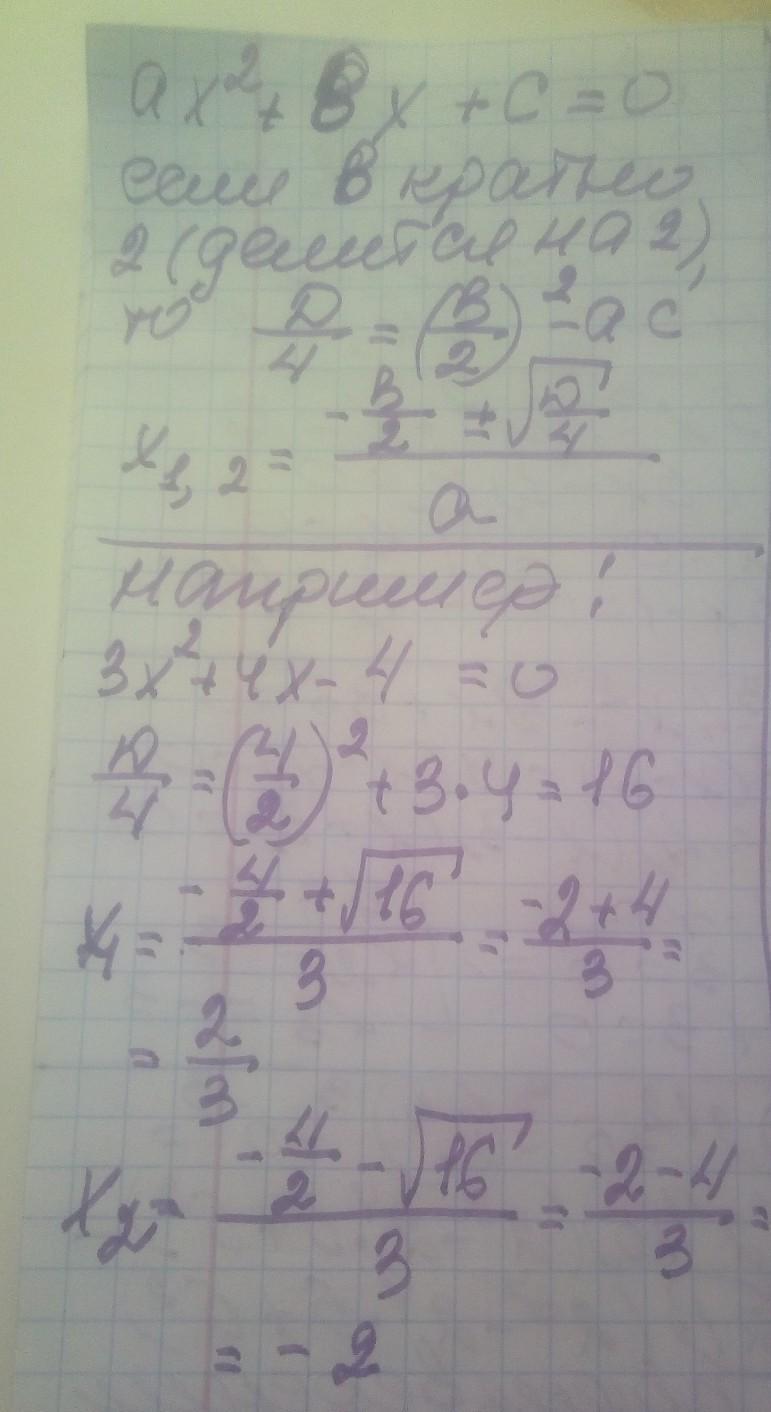 ax² + вx + c = 0
если в кратно
2 (делится на 2),
то D/4 = (в/2)² - ac
x₁,₂ = (-в/2 ± √(D/4))/a
например:
3x² + 4x - 4 = 0
D/4 = (4/2)² + 3·4 = 16
x₁ = (-4/2 + √16)/3 = (-2+4)/3 =
= 2/3
x₂ = (-4/2 - √16)/3 = (-2-4)/3 =
= -2